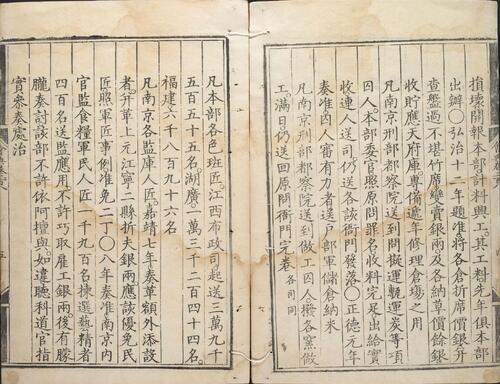 損壞開報本部計料興工其工料先年俱本部
出辦○弘治十二年題准將各倉折席價銀并
查盤過不堪竹席變賣銀兩及各納草價餘銀
收貯應天府庫專備遞年修理倉場之用
凡南京刑部都察院送到問擬運甎運炭等項
囚人本部委官照原問罪名收料完足出給實
收連人送司仍送各該衙門發落○正德元年
奏准囚人審有力者送戶部軍儲倉納米
凡南京刑部都察院送到做工囚人撥各窰做
工滿日仍送回原問衙門完卷各司同
凡本部各色班匠江西布政司起送三萬九千
五百五十五名湖廣一萬三千二百四十四名
福建六千八百九十六名
凡南京各監庫人匠嘉靖七年奏革額外添設
者并革上元江寧二縣折夫銀兩應該優免民
匠照軍匠事例准免二丁○八年奏准南京內
官監食糧軍民人匠一千九百名揀選藝精者
四百名送監應用不許巧取雇工銀兩後有朦
朧奏討該部不許依阿擅與如違聽科道官指
實參奏處治
五